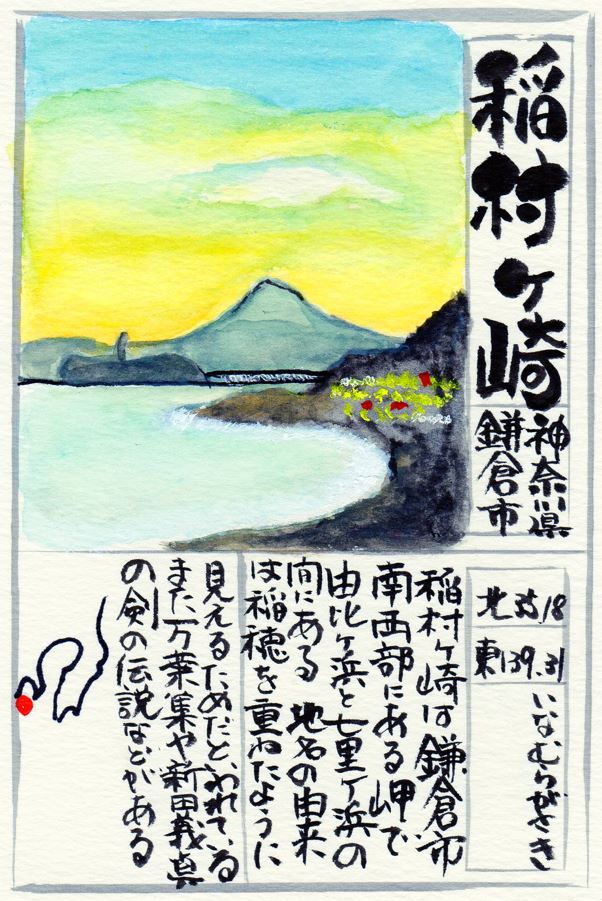 稲村ヶ崎
神奈川県
鎌倉市
北35.18
東139.31
いなむらがさき
稲村ヶ崎は鎌倉市
南西部にある岬で
由比ヶ浜と七里ヶ浜の
間にある 地名の由来
は稲穂を重ねたように
見えるためだといわれている
また万葉集や新田義貞
の剣の伝説などがある